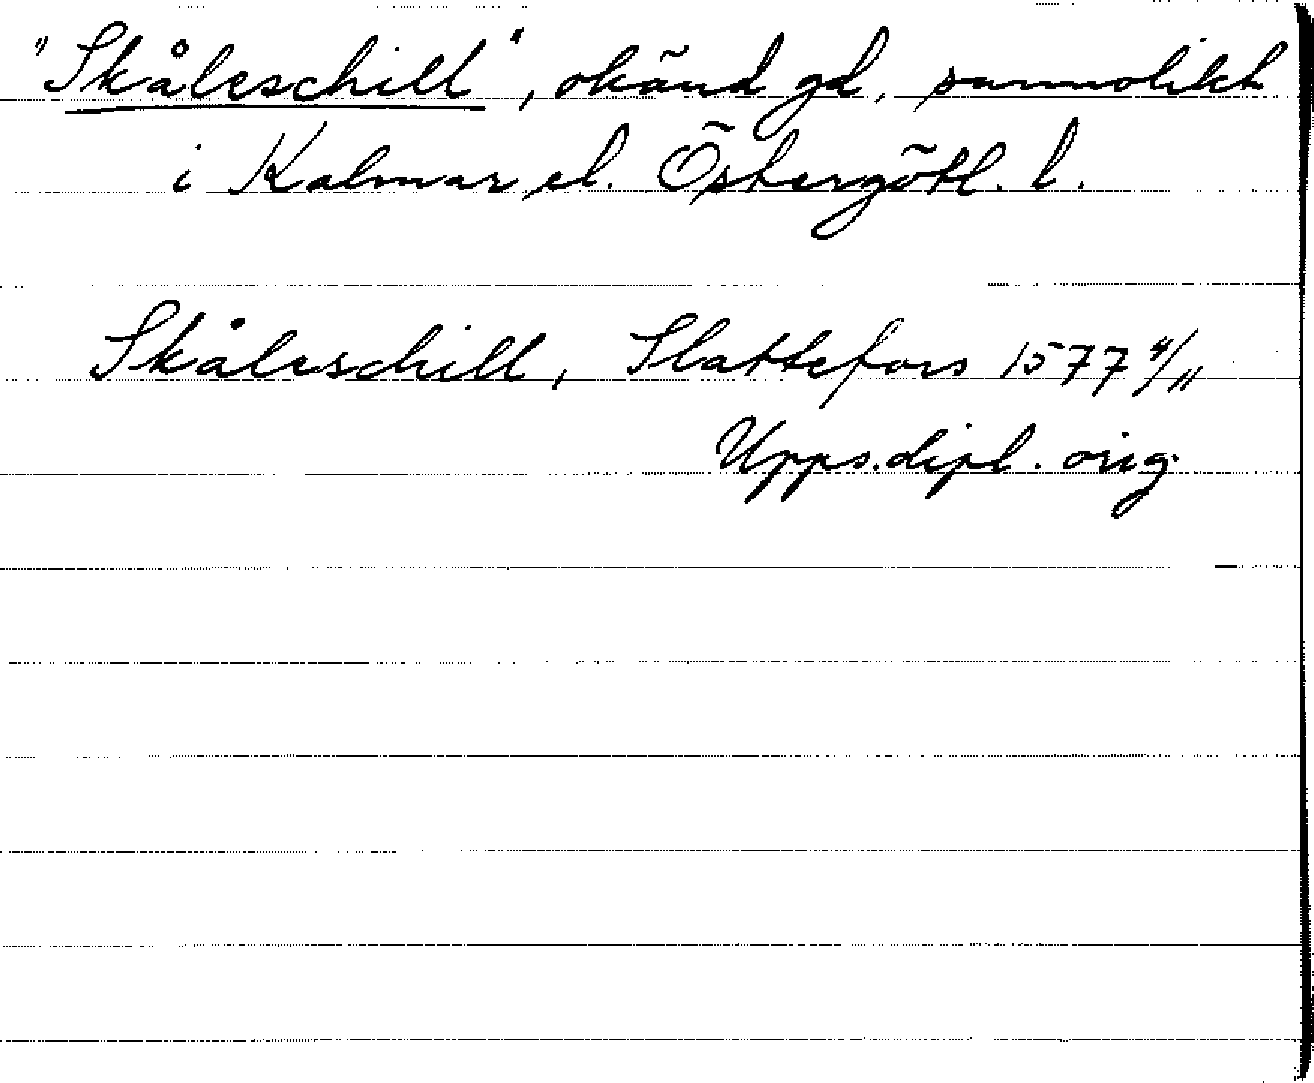 "Skåleschill", okänd gd, sannolikt
i Kalmar el. Östergötl. l.
Skåleschill, Slattefors 1577 4/11
Upps.dipl. orig.